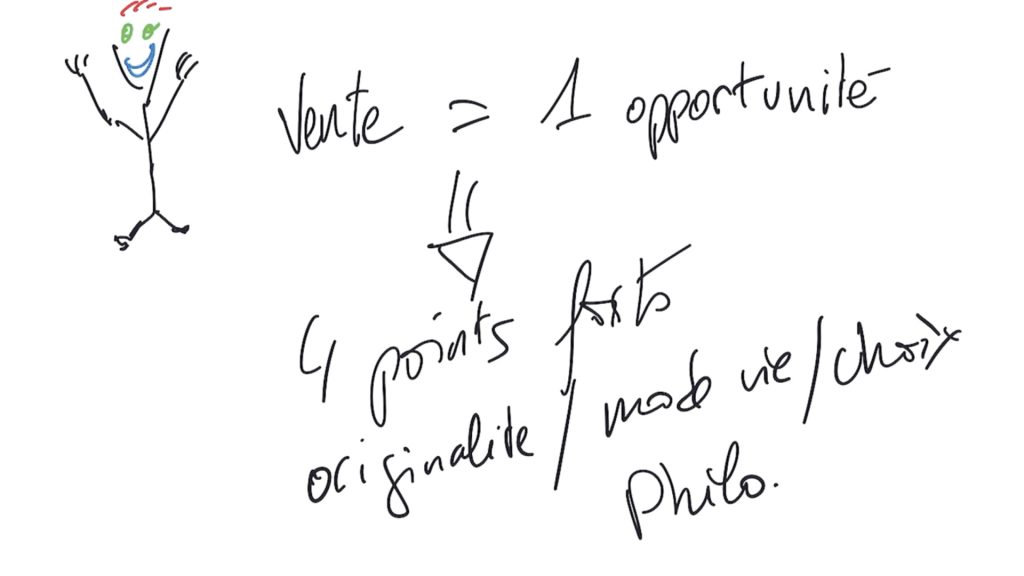 Vente = 1 opportunité
4 points forts
originalité / mode vie / choix
philo.